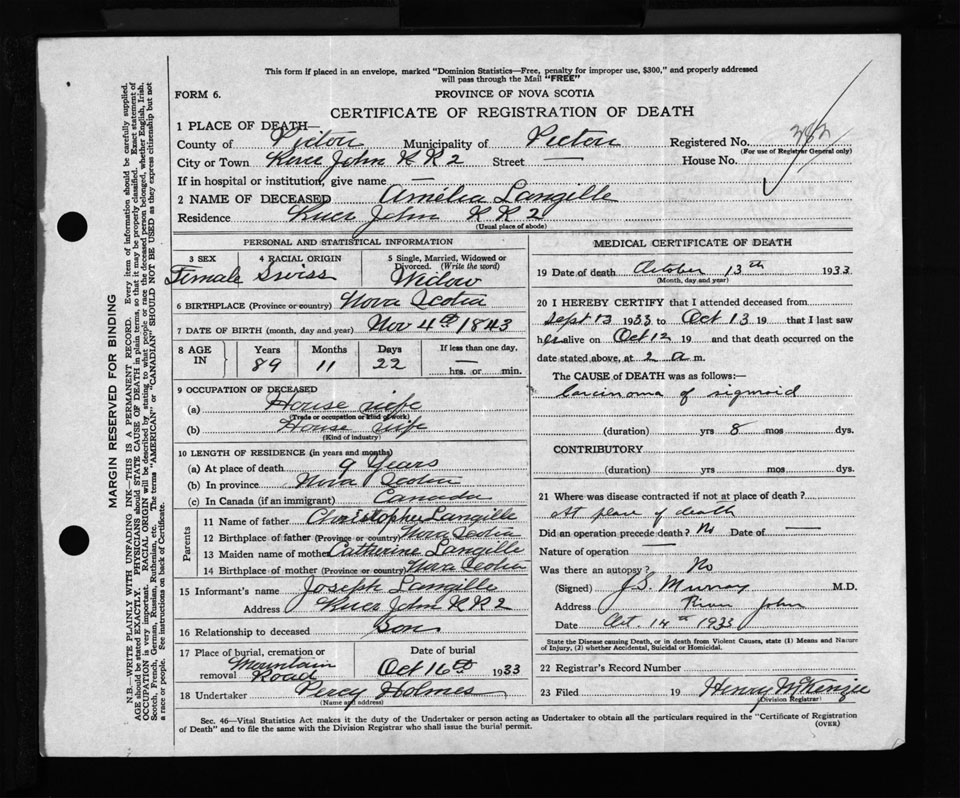 This form if placed in an envelope, marked "Dominion Statistics—Free, penalty for improper use, $300," and properly addressed
will pass through the Mail "FREE"
FORM 6.
PROVINCE OF NOVA SCOTIA
CERTIFICATE OF REGISTRATION OF DEATH
1 PLACE OF DEATH—
County of Pictou Municipality of Pictou Registered No.
(For use of Registrar General only)
City or Town River John RR2 Street — House No.
If in hospital or institution, give name —
2 NAME OF DECEASED Amelia Langille
Residence River John RR2
(Usual place of abode)
PERSONAL AND STATISTICAL INFORMATION
3 SEX Female
4 RACIAL ORIGIN Swiss
5 Single, Married, Widowed or Divorced. (Write the word) Widow
6 BIRTHPLACE (Province or country) Nova Scotia
7 DATE OF BIRTH (month, day and year) Nov 4th 1843
8 AGE IN Years Months Days If less than one day,
89 11 22 — hrs. or min.
9 OCCUPATION OF DECEASED
(a) House wife
(Trade or occupation or kind of work)
(b) House wife
(Kind of industry)
10 LENGTH OF RESIDENCE (in years and months)
(a) At place of death 9 Years
(b) In province Nova Scotia
(c) In Canada (if an immigrant) Canada
Parents
11 Name of father Christophe Langille
12 Birthplace of father (Province or country) Nova Scotia
13 Maiden name of mother Catherine Langille
14 Birthplace of mother (Province or country) Nova Scotia
15 Informant's name Joseph Langille
Address River John RR2
16 Relationship to deceased Son
17 Place of burial, cremation or removal Mountain Road
Date of burial Oct 16th 1933
18 Undertaker Percy Holmes
(Name and address)
MEDICAL CERTIFICATE OF DEATH
19 Date of death October 13th 1933
(Month, day and year)
20 I HEREBY CERTIFY that I attended deceased from
Sept 13 1933 to Oct 13 19 that I last saw
her alive on Oct 12 19 and that death occurred on the
date stated above, at 2 a m.
The CAUSE of DEATH was as follows:—
Carcinoma of sigmoid
(duration) yrs 8 mos dys.
CONTRIBUTORY
(duration) yrs. mos. dys.
21 Where was disease contracted if not at place of death?
At place of death
Did an operation precede death? No Date of —
Nature of operation —
Was there an autopsy? No
(Signed) J.S. Murray M.D.
Address River John
Date Oct. 14th 1933
State the Disease causing Death, or in death from Violent Causes, state (1) Means and Nature
of Injury, (2) whether Accidental, Suicidal or Homicidal.
22 Registrar's Record Number
23 Filed 19 Henry McKenzie
(Division Registrar)
Sec. 46—Vital Statistics Act makes it the duty of the Undertaker or person acting as Undertaker to obtain all the particulars required in the "Certificate of Registration
of Death" and to file the same with the Division Registrar who shall issue the burial permit.
(OVER)
MARGIN RESERVED FOR BINDING
N.B.—WRITE PLAINLY WITH UNFADING INK—THIS IS A PERMANENT RECORD. Every item of information should be carefully supplied.
AGE should be stated EXACTLY. PHYSICIANS should STATE CAUSE OF DEATH in plain terms, so that it may be properly classified. Exact statement of
OCCUPATION is very important. RACIAL ORIGIN will be described by stating to what people or race the deceased person belonged, whether English, Irish,
Scotch, French, German, Russian, Ruthenian, etc. The terms "AMERICAN" or "CANADIAN" SHOULD NOT BE USED as they express citizenship but not
a race or people. See instructions on back of Certificate.